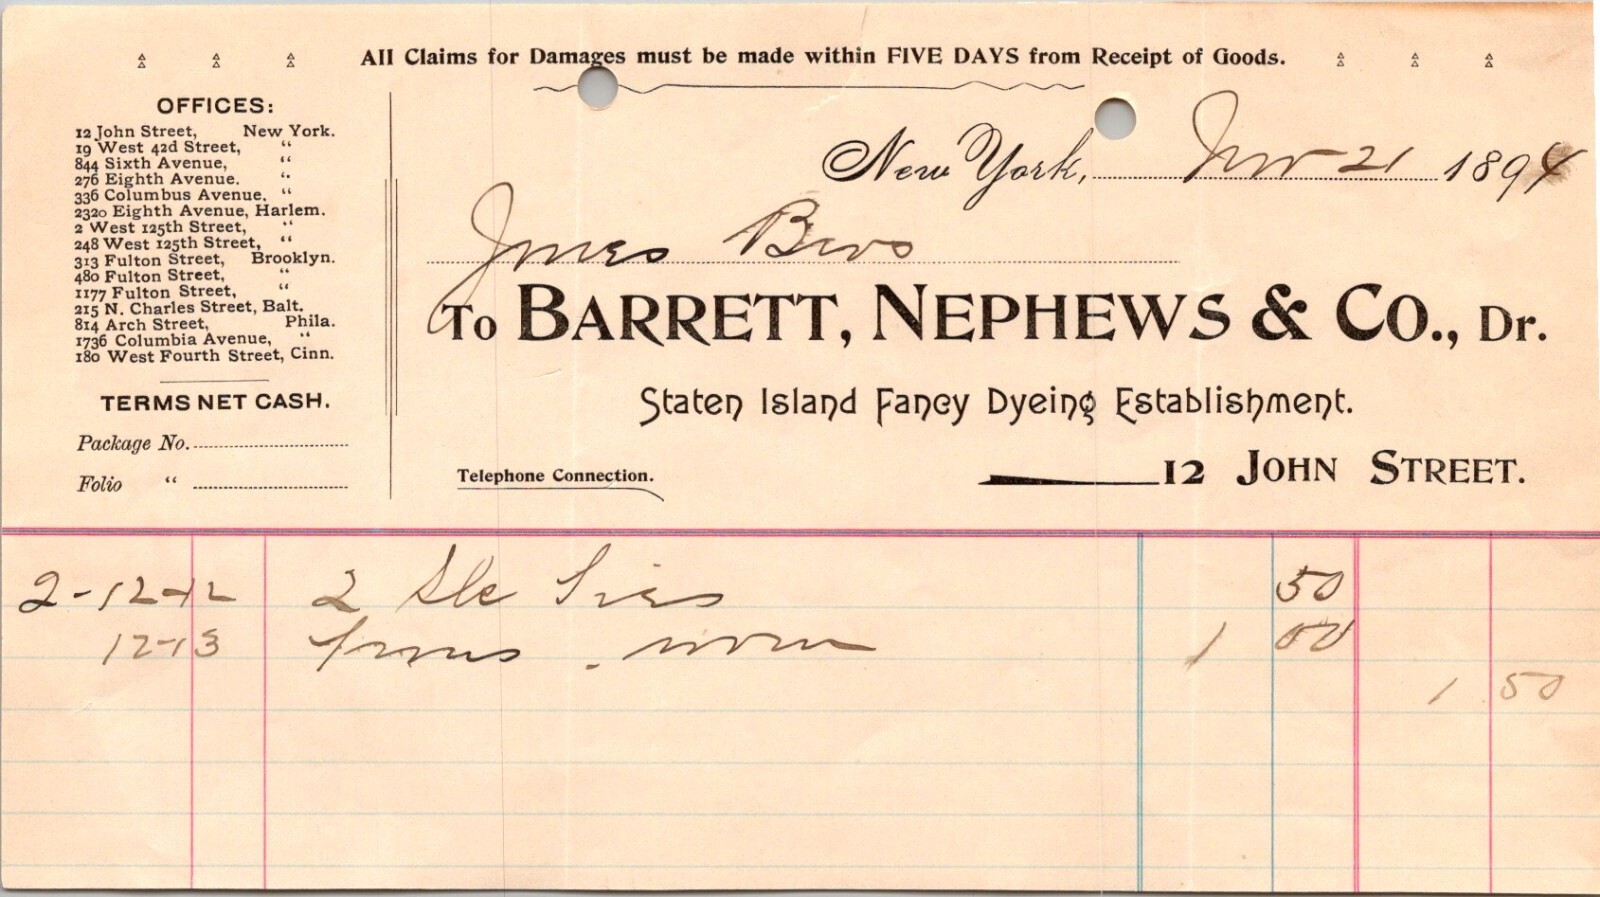 All Claims for Damages must be made within FIVE DAYS from Receipt of Goods.
OFFICES:
12 John Street, New York.
19 West 42d Street, “
844 Sixth Avenue, “
276 Eighth Avenue. “
336 Columbus Avenue. “
2320 Eighth Avenue, Harlem.
2 West 125th Street, “
248 West 125th Street, “
313 Fulton Street, Brooklyn.
480 Fulton Street, “
1177 Fulton Street, “
215 N. Charles Street, Balt.
814 Arch Street, Phila.
1736 Columbia Avenue, “
180 West Fourth Street, Cinn.
TERMS NET CASH.
Package No.
Folio “
New York, Nov 21 1894
Jones Bros
To BARRETT, NEPHEWS & CO., Dr.
Staten Island Fancy Dyeing Establishment.
Telephone Connection.
12 JOHN STREET.
2-12-12 2 50
12-13 1 00
1 50